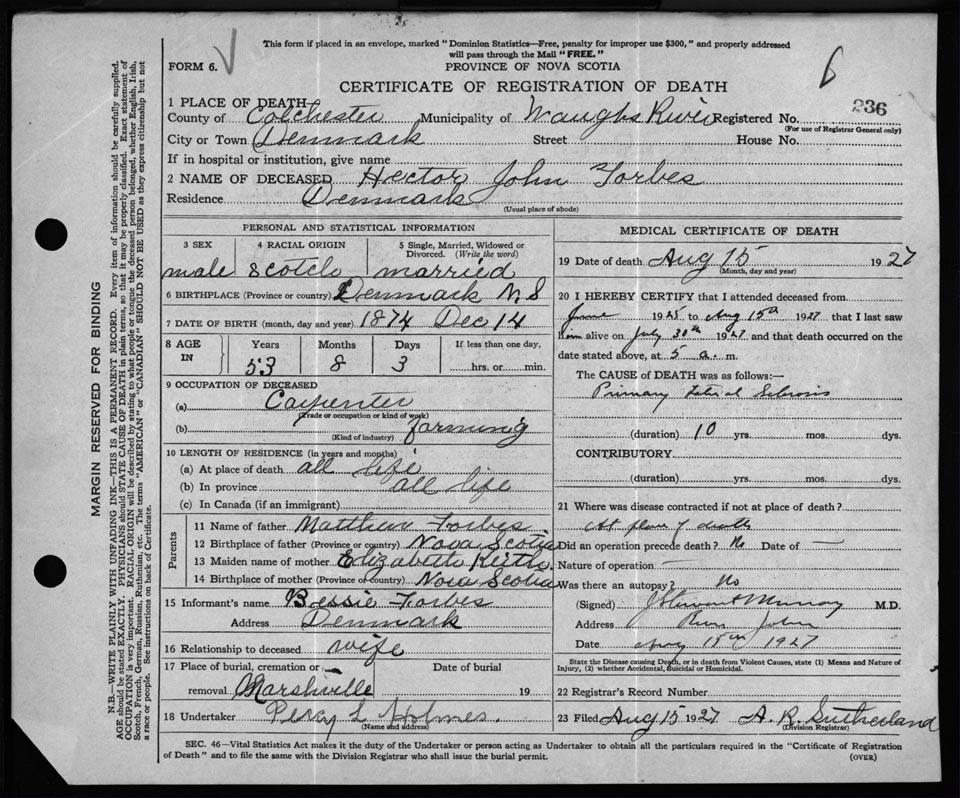 This form if placed in an envelope, marked "Dominion Statistics—Free, penalty for improper use $300," and properly addressed
will pass through the Mail "FREE."
FORM 6.
PROVINCE OF NOVA SCOTIA
6
CERTIFICATE OF REGISTRATION OF DEATH
236
1 PLACE OF DEATH
County of Colchester Municipality of Waughs River Registered No.
(For use of Registrar General only)
City or Town Denmark Street House No.
If in hospital or institution, give name
2 NAME OF DECEASED Hector John Forbes
Residence Denmark
(Usual place of abode)
PERSONAL AND STATISTICAL INFORMATION
3 SEX 4 RACIAL ORIGIN 5 Single, Married, Widowed or Divorced. (Write the word)
male Scotch married
6 BIRTHPLACE (Province or country) Denmark N.S
7 DATE OF BIRTH (month, day and year) 1874 Dec 14
8 AGE IN Years Months Days If less than one day,
53 8 3 hrs. or min.
9 OCCUPATION OF DECEASED
(a) Carpenter
(Trade or occupation or kind of work)
(b) farming
(Kind of industry)
10 LENGTH OF RESIDENCE (in years and months)
(a) At place of death all life
(b) In province all life
(c) In Canada (if an immigrant)
Parents
11 Name of father Matthew Forbes
12 Birthplace of father (Province or country) Nova Scotia
13 Maiden name of mother Elizabeth Keith.
14 Birthplace of mother (Province or country) Nova Scotia
15 Informant's name Bessie Forbes
Address Denmark
16 Relationship to deceased wife
17 Place of burial, cremation or Date of burial
removal Marshville 19
18 Undertaker Percy L Holmes.
(Name and address)
MEDICAL CERTIFICATE OF DEATH
19 Date of death Aug 15 1927
(Month, day and year)
20 I HEREBY CERTIFY that I attended deceased from
June 1925 to Aug 15th 1927 that I last saw
him alive on July 30th 1927 and that death occurred on the
date stated above, at 5 a. m.
The CAUSE of DEATH was as follows:—
Primary
(duration) 10 yrs. mos. dys.
CONTRIBUTORY
(duration) yrs. mos. dys.
21 Where was disease contracted if not at place of death?
At place of death
Did an operation precede death? No Date of —
Nature of operation —
Was there an autopsy? No
(Signed) J Stewart Murray M.D.
Address River John
Date Aug 15th 1927
State the Disease causing Death, or in death from Violent Causes, state (1) Means and Nature of
Injury, (2) whether Accidental, Suicidal or Homicidal.
22 Registrar's Record Number
23 Filed Aug 15 1927 A. R. Sutherland
(Division Registrar)
SEC. 46—Vital Statistics Act makes it the duty of the Undertaker or person acting as Undertaker to obtain all the particulars required in the "Certificate of Registration
of Death" and to file the same with the Division Registrar who shall issue the burial permit.
(OVER)
MARGIN RESERVED FOR BINDING
N.B.—WRITE PLAINLY WITH UNFADING INK—THIS IS A PERMANENT RECORD. Every item of information should be carefully supplied.
AGE should be stated EXACTLY. PHYSICIANS should STATE CAUSE OF DEATH in plain terms, so that it may be properly classified. Exact statement of
OCCUPATION is very important. RACIAL ORIGIN will be described by stating to what people or tongue the deceased person belonged, whether English, Irish,
Scotch, French, German, Russian, Ruthenian, etc. The terms "AMERICAN" or "CANADIAN" SHOULD NOT BE USED as they express citizenship but not
a race or people. See instructions on back of Certificate.